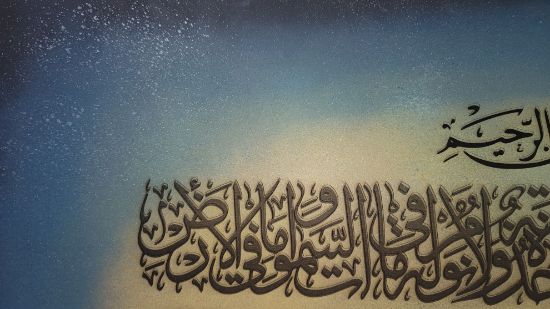 الرحيم
سنة ولا نوم له ما في السموات وما في الأرض